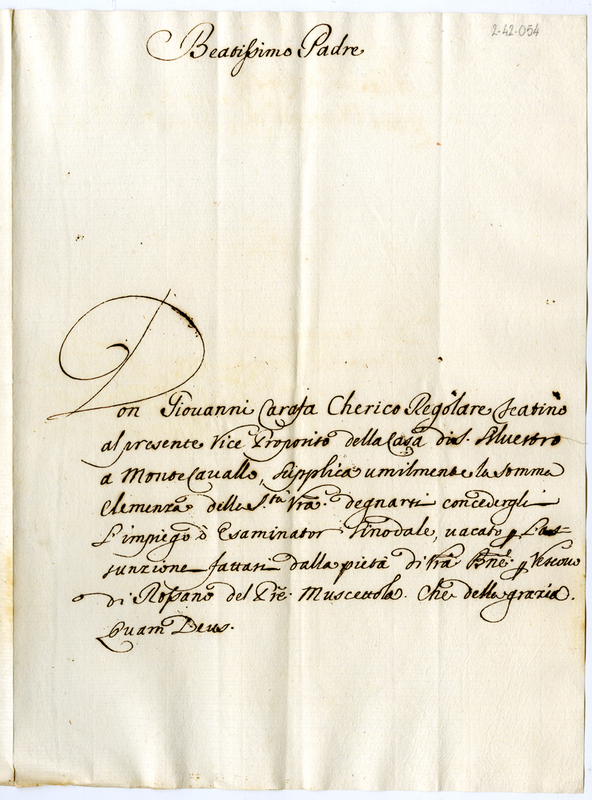 2-42-054
Beatissimo Padre
Don Giovanni Carafa Cherico Regolare Teatino
al presente Vice Proposito della Casa di S. Silvestro
a Monte Cavallo, supplica umilmente la somma
Clemenza della S.tà Vra. degnarsi concedergli
l'impiego d'Esaminator Sinodale, vacato p l'as=
sunzione fattasi dalla pietà di Vra Bne. p Vescovo
di Rossano del Pre. Muscettola. Che della grazia.
Quam Deus.